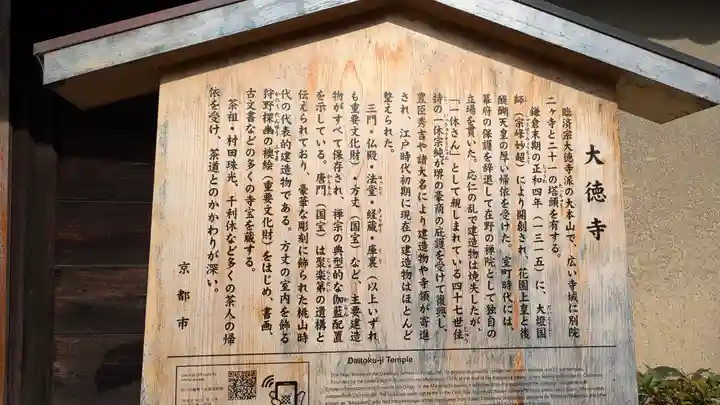 大徳寺
臨済宗大徳寺派の大本山で、広い寺域に別院
二ヶ寺と二十一の塔頭を有する。
鎌倉末期の正和四年（一三一五）に、大燈国
師（宗峰妙超）により開創され、花園上皇と後
醍醐天皇の厚い帰依を受けた。室町時代には、
幕府の保護を辞退して在野の禅院として独自の
立場を貫いた。応仁の乱で建造物は焼失したが、
「一休さん」として親しまれている四十七世住
持の一休宗純が堺の豪商の庇護を受けて復興し、
豊臣秀吉や諸大名により建造物や寺領が寄進
され、江戸時代初期に現在の建造物はほとんど
整えられた。
三門・仏殿・法堂・経蔵・庫裏（以上いずれ
も重要文化財）・方丈（国宝）など、主要建造
物がすべて保存され、禅宗の典型的な伽藍配置
を示している。唐門（国宝）は聚楽第の遺構と
伝えられており、豪華な彫刻に飾られた桃山時
代の代表的建造物である。方丈の室内を飾る
狩野探幽の襖絵（重要文化財）をはじめ、書画、
古文書などの多くの寺宝を蔵する。
茶祖・村田珠光、千利休など多くの茶人の帰
依を受け、茶道とのかかわりが深い。
京都市
Daitoku-ji Temple